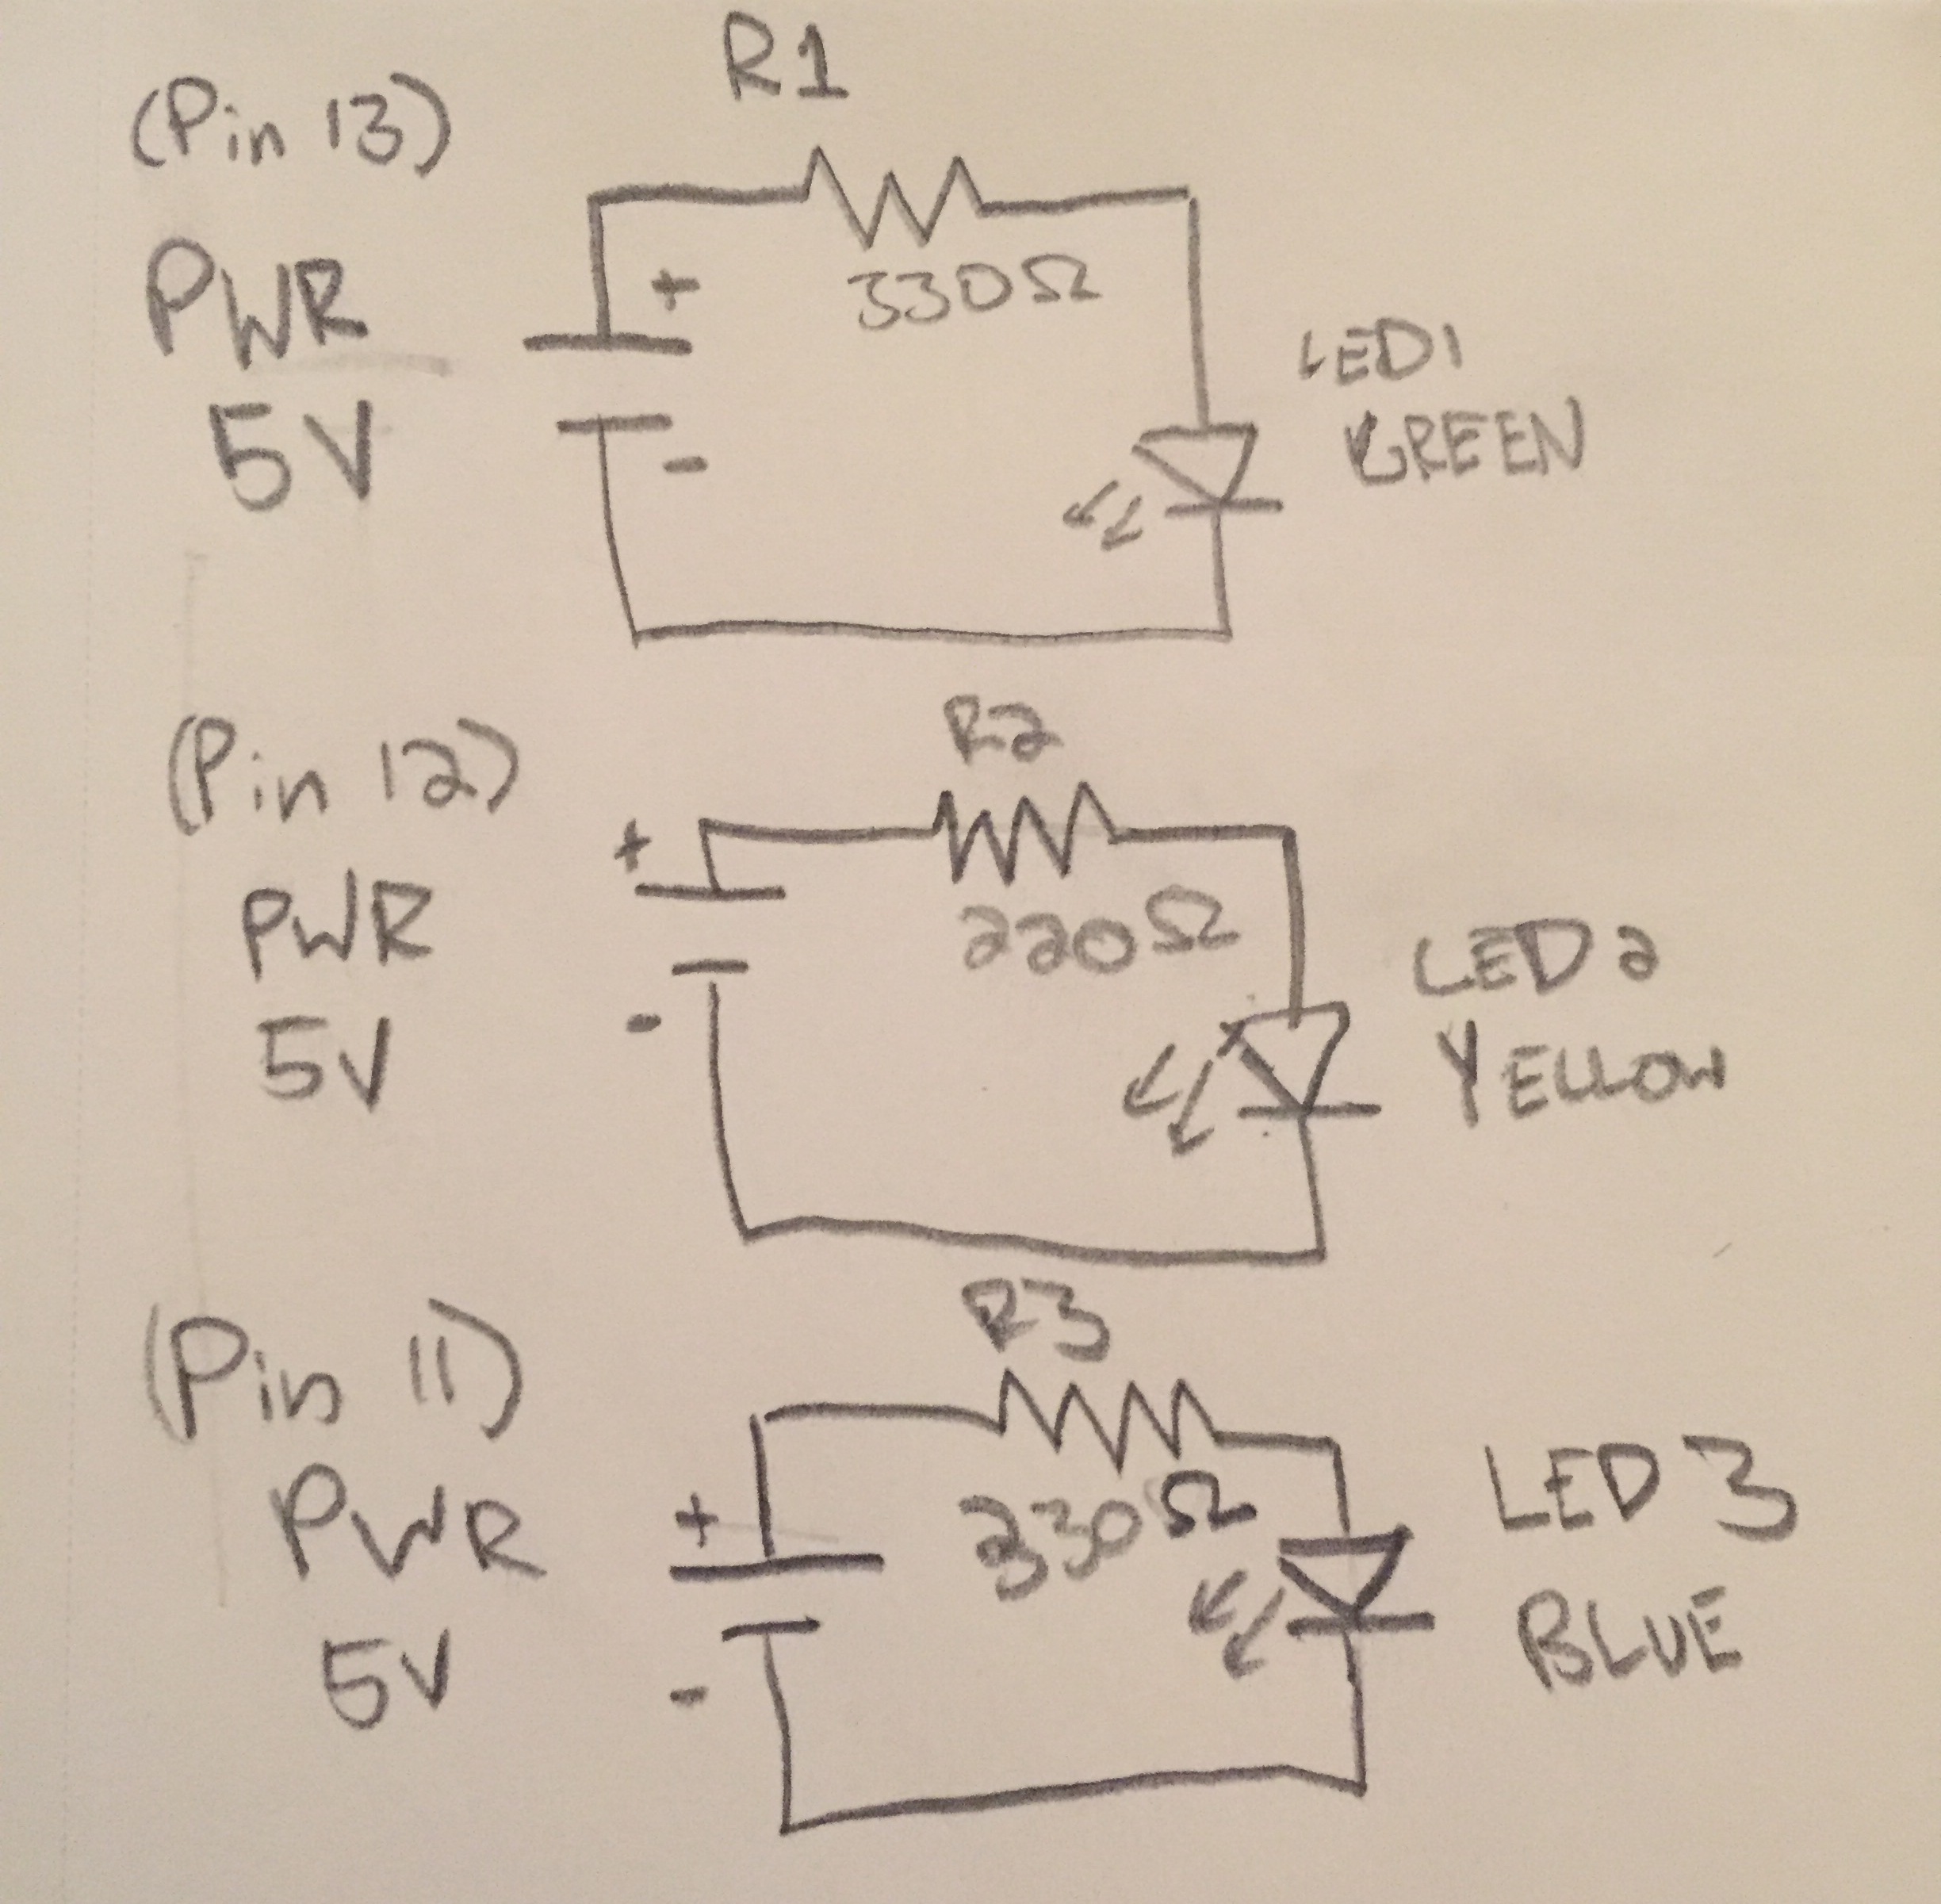 R1
(Pin 13)
PWR
5V
+
-
330Ω
LED1
GREEN
R2
(Pin 12)
PWR
5V
+
-
220Ω
LED2
YELLOW
R3
(Pin 11)
PWR
5V
+
-
330Ω
LED 3
BLUE